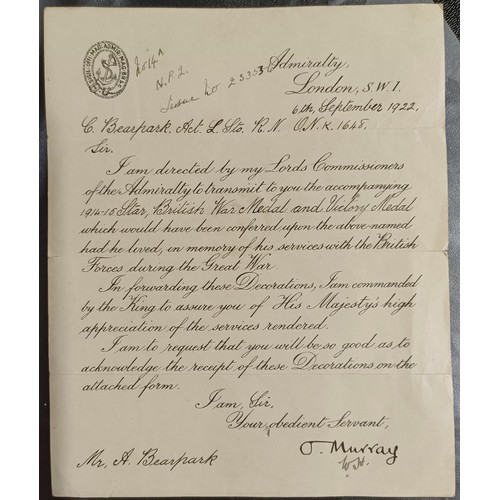 2014A
N.P.2.
Issue No 23353
Admiralty,
London, S.W.1.
6th, September 1922,
C. Bearpark, Act. L. Sto. R.N. O.N. K. 1648,
Sir,
I am directed by my Lords Commissioners
of the Admiralty to transmit to you the accompanying
1914-15 Star, British War Medal and Victory Medal
which would have been conferred upon the above-named
had he lived, in memory of his services with the British
Forces during the Great War.
In forwarding these Decorations, I am commanded
by the King to assure you of His Majesty's high
appreciation of the services rendered.
I am to request that you will be so good as to
acknowledge the receipt of these Decorations on the
attached form.
I am, Sir,
Your obedient Servant,
Murray
Mr. A. Bearpark